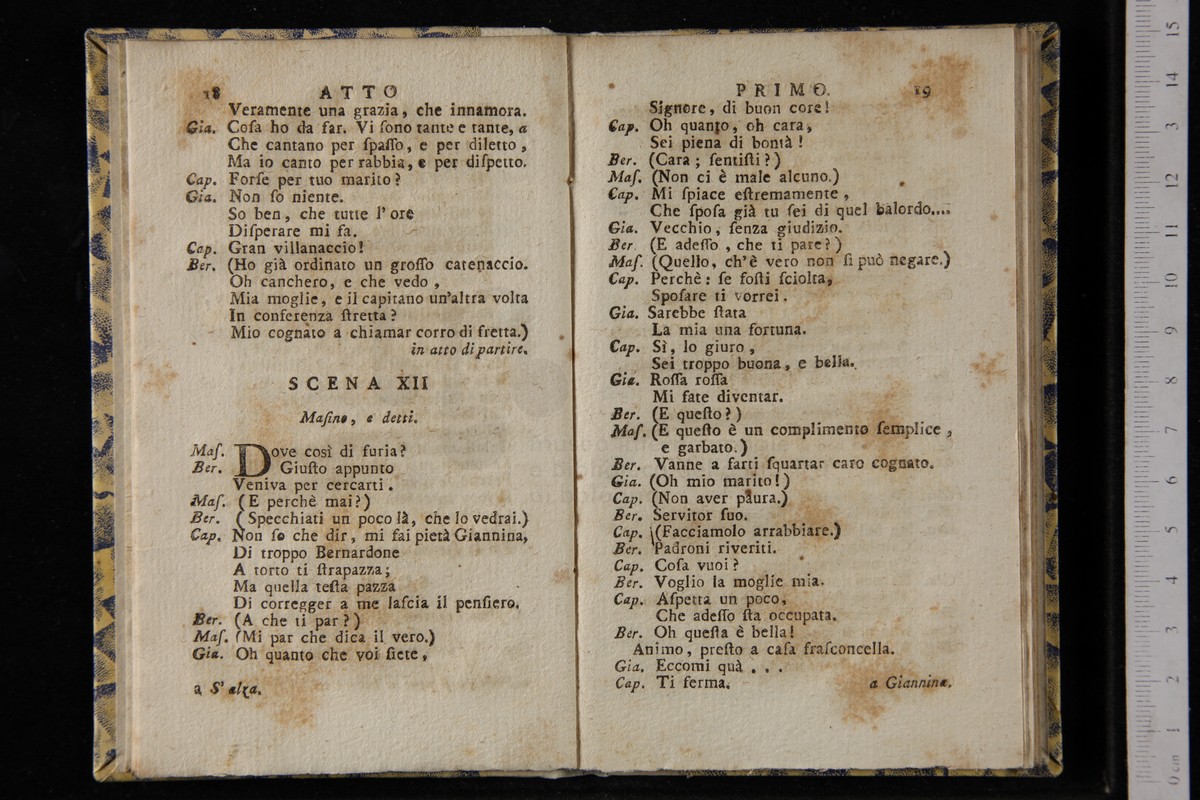 18 ATTO
Veramente una grazia, che innamora.
Gia. Coſa ho da far. Vi ſono tante e tante, a
Che cantano per ſpaſſo, e per diletto,
Ma io canto per rabbia, e per diſpetto.
Cap. Forſe per tuo marito?
Gia. Non ſo niente.
So ben, che tutte l' ore
Diſperare mi fa.
Cap. Gran villanaccio!
Ber. (Ho già ordinato un groſſo catenaccio.
Oh canchero, e che vedo,
Mia moglie, e il capitano un'altra volta
In conferenza ſtretta?
Mio cognato a chiamar corro di fretta.)
in atto di partire.
SCENA XII
Maſino, e detti.
Maſ. Dove così di furia?
Ber. Giuſto appunto
Veniva per cercarti.
Maſ. (E perchè mai?)
Ber. (Specchiati un poco là, che lo vedrai.)
Cap. Non ſo che dir, mi fai pietà Giannina,
Di troppo Bernardone
A torto ti ſtrapazza;
Ma quella teſta pazza
Di corregger a me laſcia il penſiero.
Ber. (A che ti par?)
Maſ. (Mi par che dica il vero.)
Gia. Oh quanto che voi ſiete,
a S' alza.
PRIMO. 19
Signore, di buon core!
Cap. Oh quanto, oh cara,
Sei piena di bontà!
Ber. (Cara; ſentiſti?)
Maſ. (Non ci è male alcuno.)
Cap. Mi ſpiace eſtremamente,
Che ſpoſa già tu ſei di quel balordo....
Gia. Vecchio, ſenza giudizio.
Ber. (E adeſſo, che ti pare?)
Maſ. (Quello, ch'è vero non ſi può negare.)
Cap. Perchè: ſe foſti ſciolta,
Spoſare ti vorrei.
Gia. Sarebbe ſtata
La mia una fortuna.
Cap. Sì, lo giuro,
Sei troppo buona, e bella.
Gia. Roſſa roſſa
Mi fate diventar.
Ber. (E queſto?)
Maſ. (E queſto è un complimento ſemplice,
e garbato.)
Ber. Vanne a farti ſquartar caro cognato.
Gia. (Oh mio marito!)
Cap. (Non aver paura.)
Ber. Servitor ſuo.
Cap. (Facciamolo arrabbiare.)
Ber. Padroni riveriti.
Cap. Coſa vuoi?
Ber. Voglio la moglie mia.
Cap. Aſpetta un poco,
Che adeſſo ſta occupata.
Ber. Oh queſta è bella!
Animo, preſto a caſa fraſconcella.
Gia. Eccomi quà . . .
Cap. Ti ferma. a Giannina.
15
14
13
12
11
10
9
8
7
6
5
4
3
2
1
0 cm